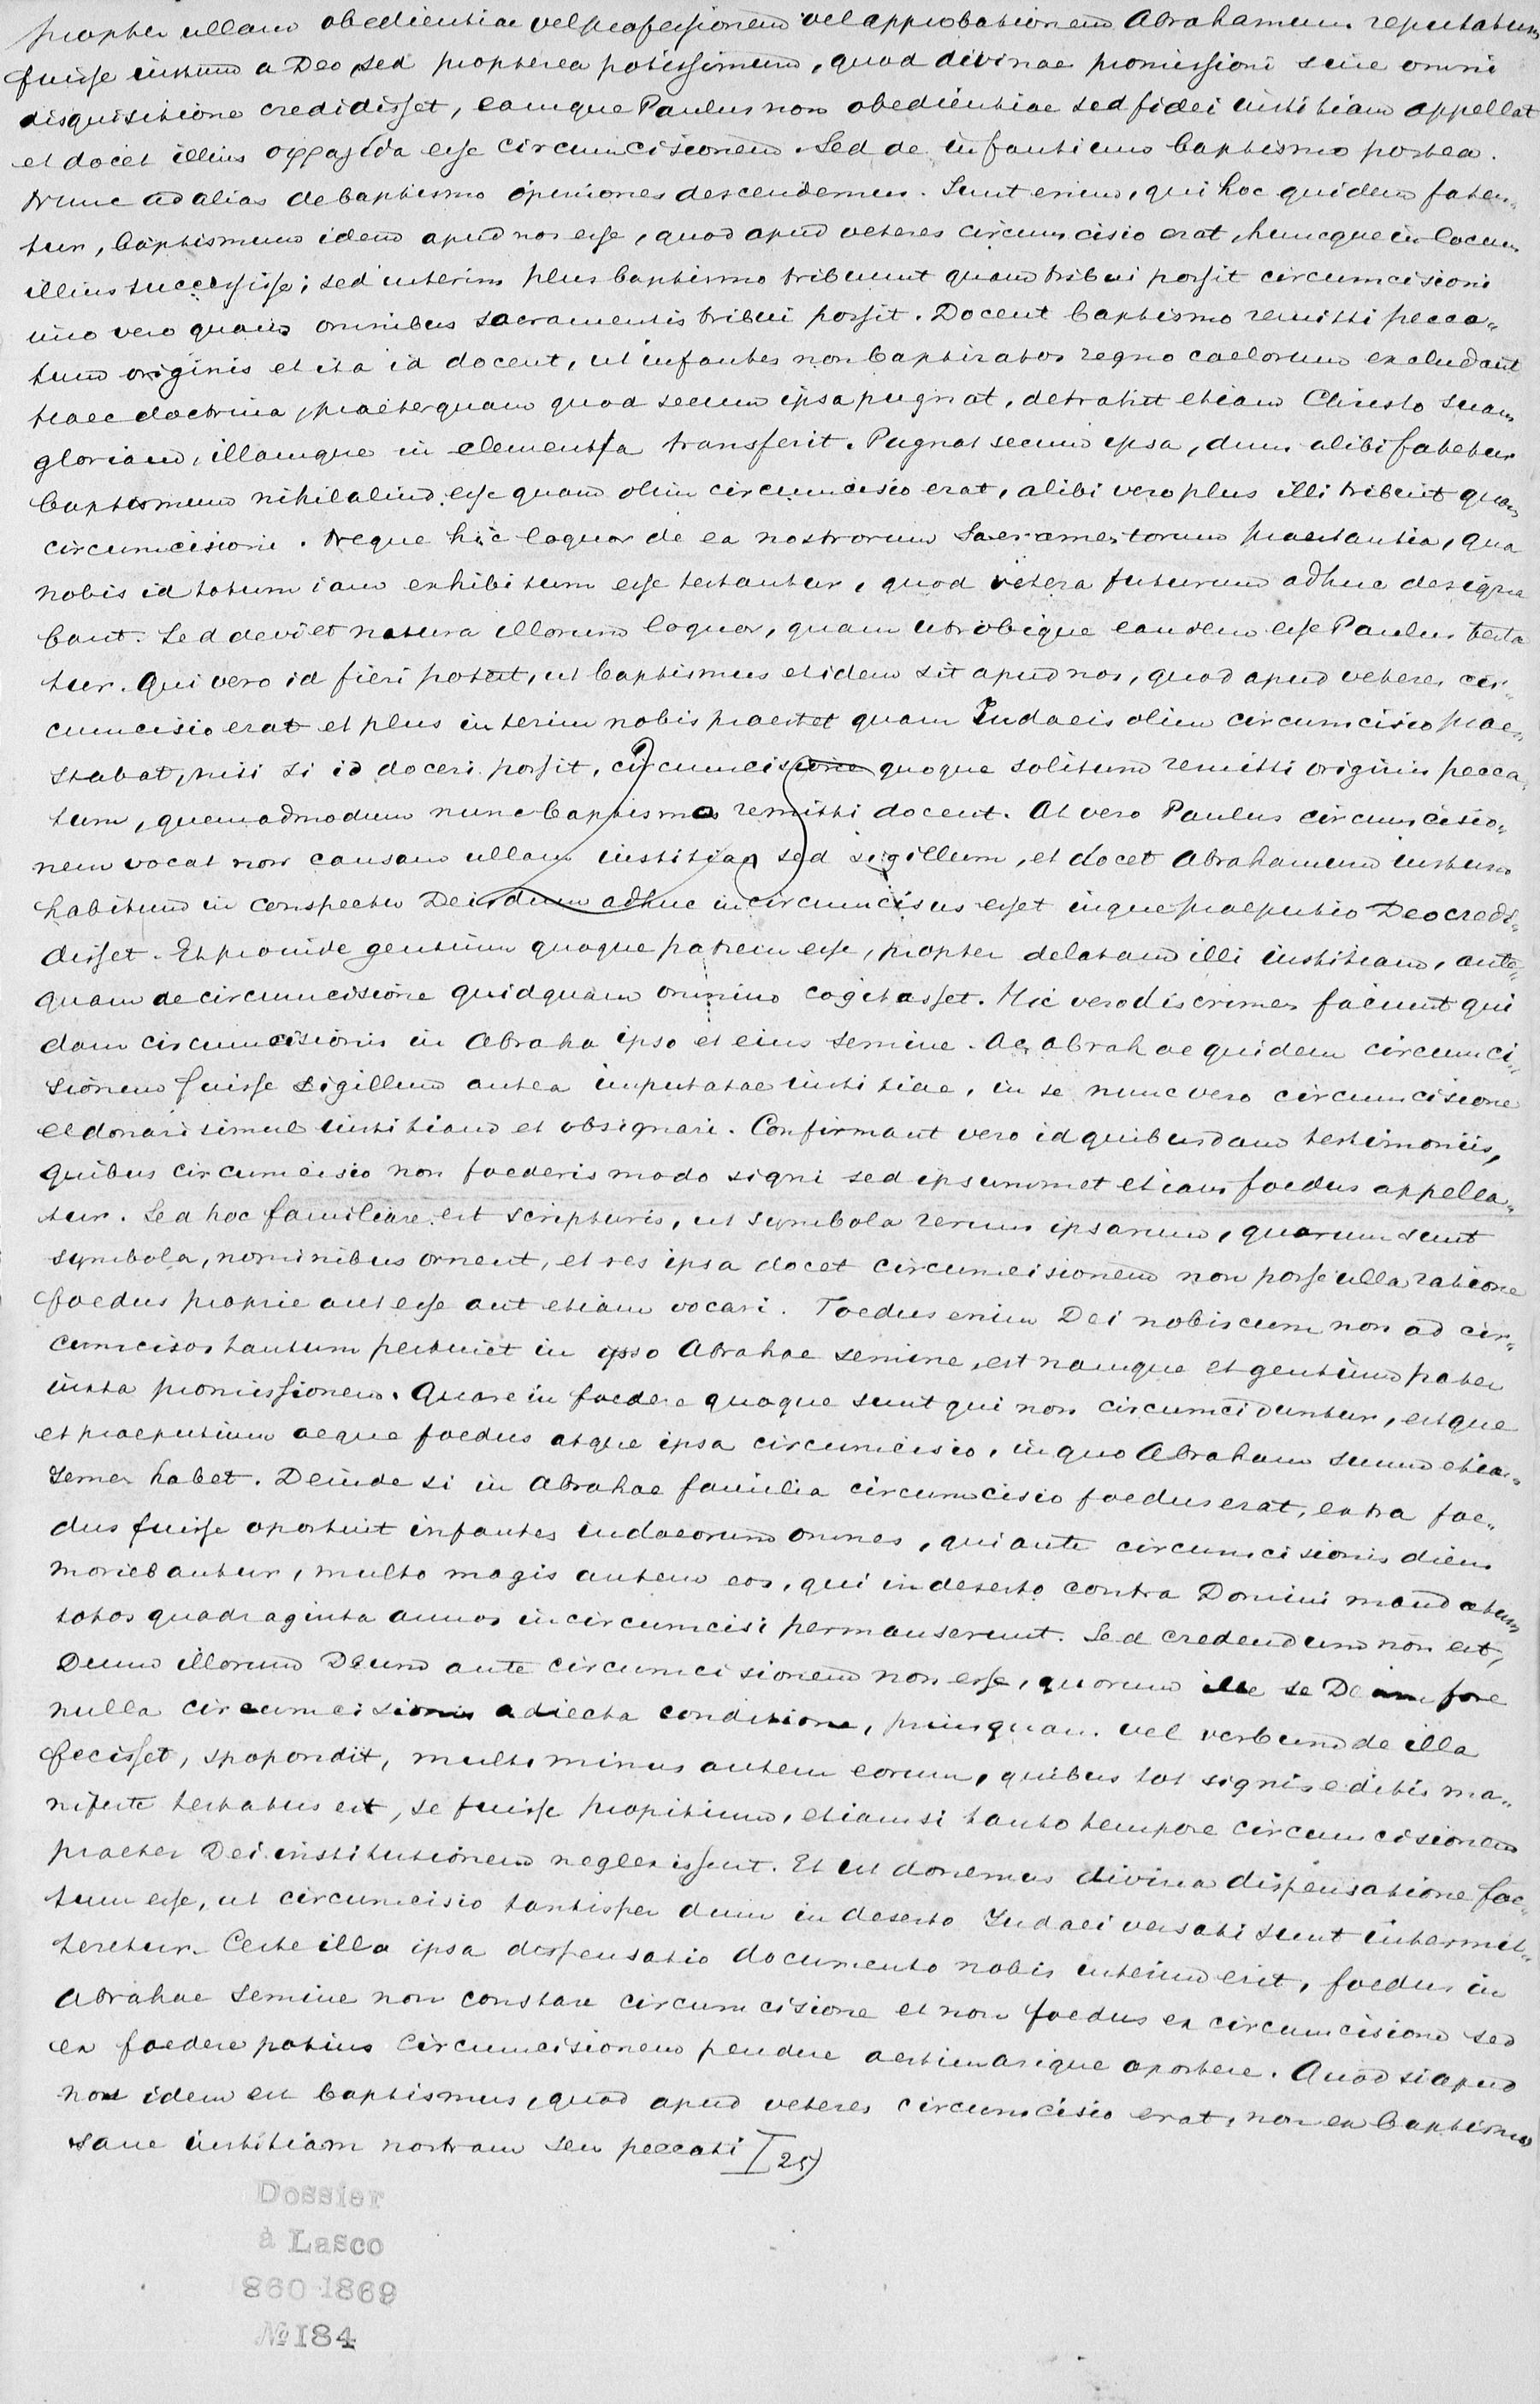 propter ullam obedientiae vel professionem vel approbationem Abrahamum reputatum
fuisse iustum a Deo, sed propterea potissimum, quod divinae promissioni sine omni
disquisitione credidisset, eamque Paulus non obedientiae sed fidei iustitiam appellat
et docet illius σφραγῖδα esse circumcisionem. Sed de infantium baptismo postea.
Nunc ad alias de baptismo opiniones descendemus. Sunt enim, qui hoc quidem faten„
tur, baptismum idem apud nos esse, quod apud veteres circumcisio erat, huncque in locum
illius successisse; sed interim plus baptismo tribuunt quam tribui possit circumcisioni
imo vero quam omnibus sacramentis tribui possit. Docent baptismo remitti pecca„
tum originis et ita id docent, ut infantes non baptizatos regno caelorum excludant
Haec doctrina, praeterquam quod secum ipsa pugnat, detrahit etiam Christo suam
gloriam, illamque in elementa transferit. Pugnat secum ipsa, dum alibi fatetur
baptismum nihil aliud esse quam olim circumcisio erat, alibi vero plus illi tribuit quam
circumcisioni. Neque hic loquor de ea nostrorum Sacramentorum praestantia, qua
nobis id totum iam exhibitum esse testantur, quod vetera futurum adhuc designa
bant. Sed de vi et natura illorum loquor, quam utrobique eandem esse Paulus testa
tur. Qui vero id fieri potest, ut baptismus et idem sit apud nos, quod apud veteres cir„
cumcisio erat et plus interim nobis praestet quam Judaeis olim circumcisio prae„
stabat, nisi si id doceri possit, circumcisione quoque solitum remitti originis pecca„
tum, quemadmodum nunc baptismo remitti docent. At vero Paulus circumcisio„
nem vocat non causam ullam iustitiae sed sigillum, et docet Abrahamum iustum
habitum in conspectu Dei dum adhuc incircumcisus esset inque praeputio Deo credi„
disset. Et proinde gentium quoque patrem esse, propter delatam illi iustitiam, ante„
quam de circumcisione quidquam omnino cogitasset. Hic vero discrimen faciunt qui
dam circumcisionis in Abraha ipso et eius semine. Ac Abrahae quidem circumci„
sionem fuisse sigillum antea imputatae iustitiae, in se nunc vero circumcisione
et donari simul iustitiam et obsignari. Confirmant vero id quibusdam testimoniis,
quibus circumcisio non foederis modo signi sed ipsummet etiam foedus appella„
tur. Sed hoc familiare est scripturis, ut symbola rerum ipsarum, quarum sunt
symbola, nominibus ornent, et res ipsa docet circumcisionem non posse ulla ratione
foedus proprie aut esse aut etiam vocari. Foedus enim Dei nobiscum non ad cir„
cumcisos tantum pertinet in ipso Abrahae semine, est namque et gentium pater
iuxta promissionem. Quare in foedere quoque sunt qui non circumciduntur, estque
et praeputium aeque foedus atque ipsa circumcisio, in quo Abraham suum etiam
semen habet. Deinde si in Abrahae familia circumcisio foedus erat, extra foe„
dus fuisse oportuit infantes iudaeorum omnes, qui ante circumcisionis diem
moriebantur, multo magis autem eos, qui in deserto contra Domini mandatum
totos quadraginta annos incircumcisi permanserunt. Sed credendum non est,
Deum illorum Deum ante circumcisionem non esse, quorum ille se Deum fore
nulla circumcisionis adiecta conditione, priusquam vel verbum de illa
fecisset, spopondit, multo minus autem eorum, quibus tot signis editis ma„
nifeste testatus est, se fuisse propitium, etiamsi tanto tempore circumcisionem
praeter Dei institutionem neglexissent. Et ut donemus divina dispensatione fac„
tum esse, ut circumcisio tantisper dum in deserto Judaei versati sunt intermit„
teretur. Certe illa ipsa dispensatio documento nobis interim erit, foedus in
Abrahae semine non constare circumcisione et non foedus ex circumcisione sed
ex foedere potius circumcisionem pendere aestimarique oportere. Quod si apud
nos idem est baptismus, quod apud veteres circumcisio erat, non ex baptismo
sane iustitiam nostram seu peccati I 25)
Dossier
à Lasco
1860-1869
№ 184